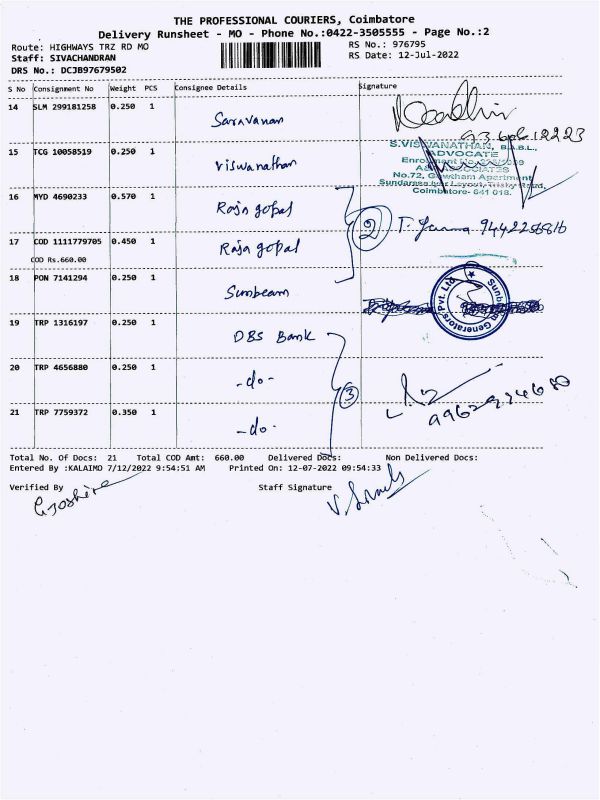 THE PROFESSIONAL COURIERS, Coimbatore
Delivery Runsheet - MO - Phone No.:0422-3505555 - Page No.:2
Route: HIGHWAYS TRZ RD MO RS No.: 976795
Staff: SIVACHANDRAN RS Date: 12-Jul-2022
DRS No.: DCJB97679502
S No Consignment No Weight PCS Consignee Details Signature
14 SLM 299181258 0.250 1 Saravanan
15 TCG 10058519 0.250 1 Viswanathan
S.VISWANATHAN, B.A.B.L.,
ADVOCATE
ASSOCIATES
No.72, Gowtham Apartment
Coimbatore- 641 018.
16 MYD 4690233 0.570 1 Raja gopal
2 9442256816
17 COD 1111779705 0.450 1 Raja gopal
COD Rs.660.00
18 PON 7141294 0.250 1 Sunbeam
Sunbeam Generators Pvt. Ltd
19 TRP 1316197 0.250 1 DBS Bank
20 TRP 4656880 0.250 1 -do-
3
21 TRP 7759372 0.350 1 -do-
Total No. Of Docs: 21 Total COD Amt: 660.00 Delivered Docs: Non Delivered Docs:
Entered By :KALAIMO 7/12/2022 9:54:51 AM Printed On: 12-07-2022 09:54:33
Verified By Staff Signature